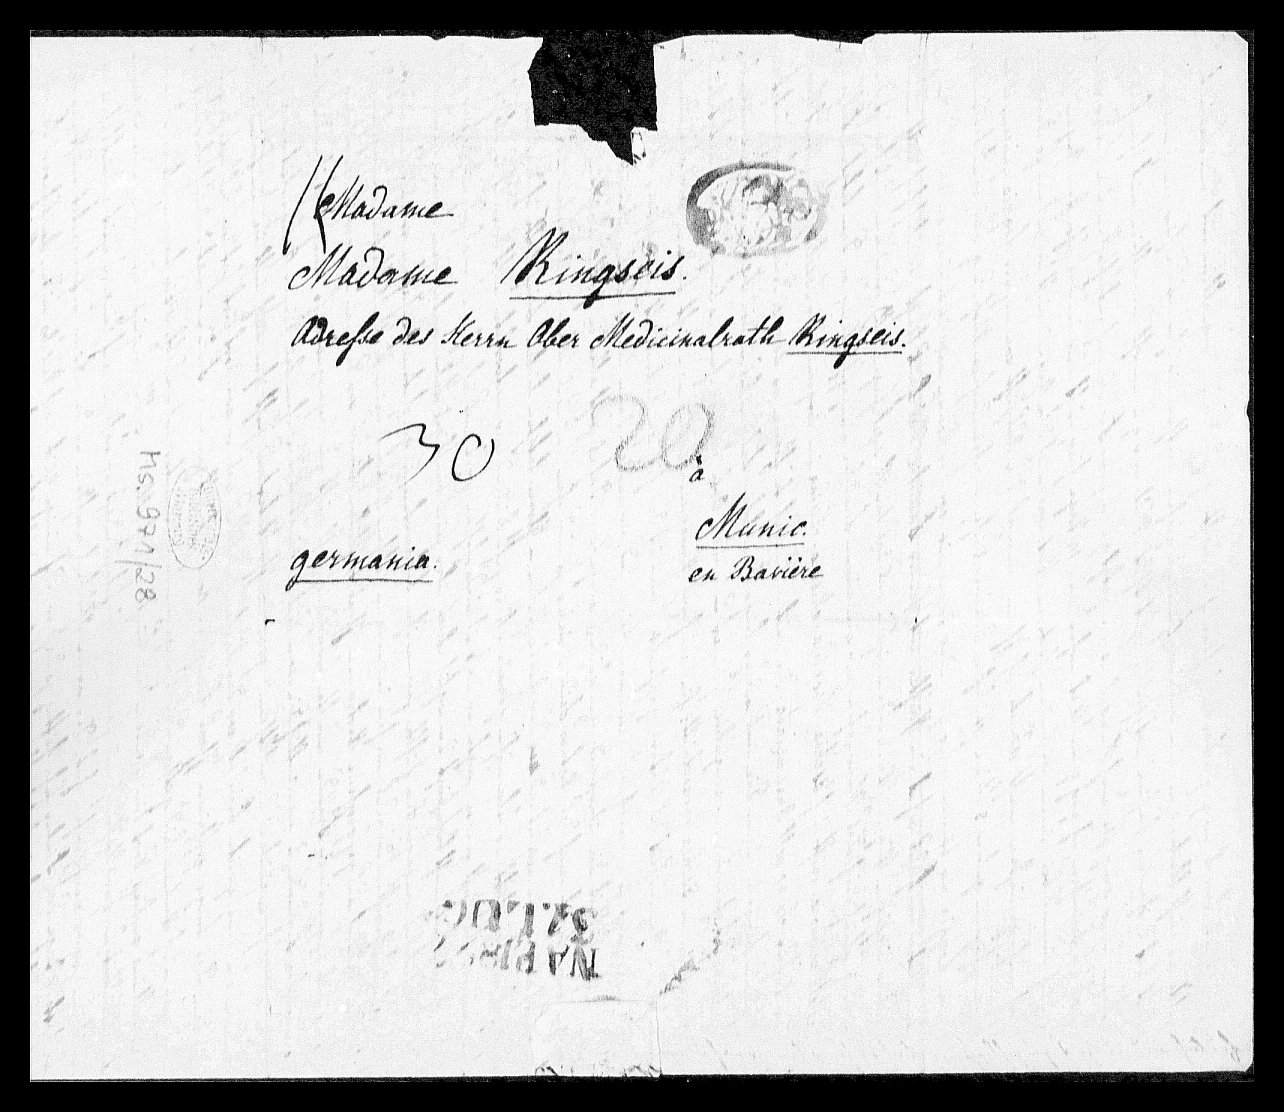 Madame
Madame Ringseis.
Adresse des Herrn Ober Medicinalrath Ringseis.
30
20
à
Munic.
en Bavière
germania.
Hs. 971/28